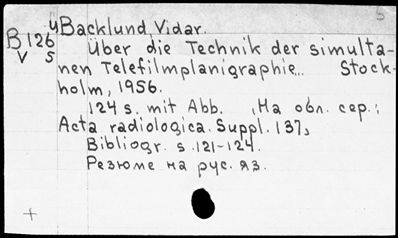 5
B 126 4 Backlund, Vidar.
V 5 Über die Technik der simulta-
nen Telefilmplanigraphie... Stock-
holm, 1956.
124 s. mit Abb. , На обл. сер.:
Acta radiologica. Suppl. 137,
Bibliogr. s. 121-124.
Резюме на рус. яз.
+